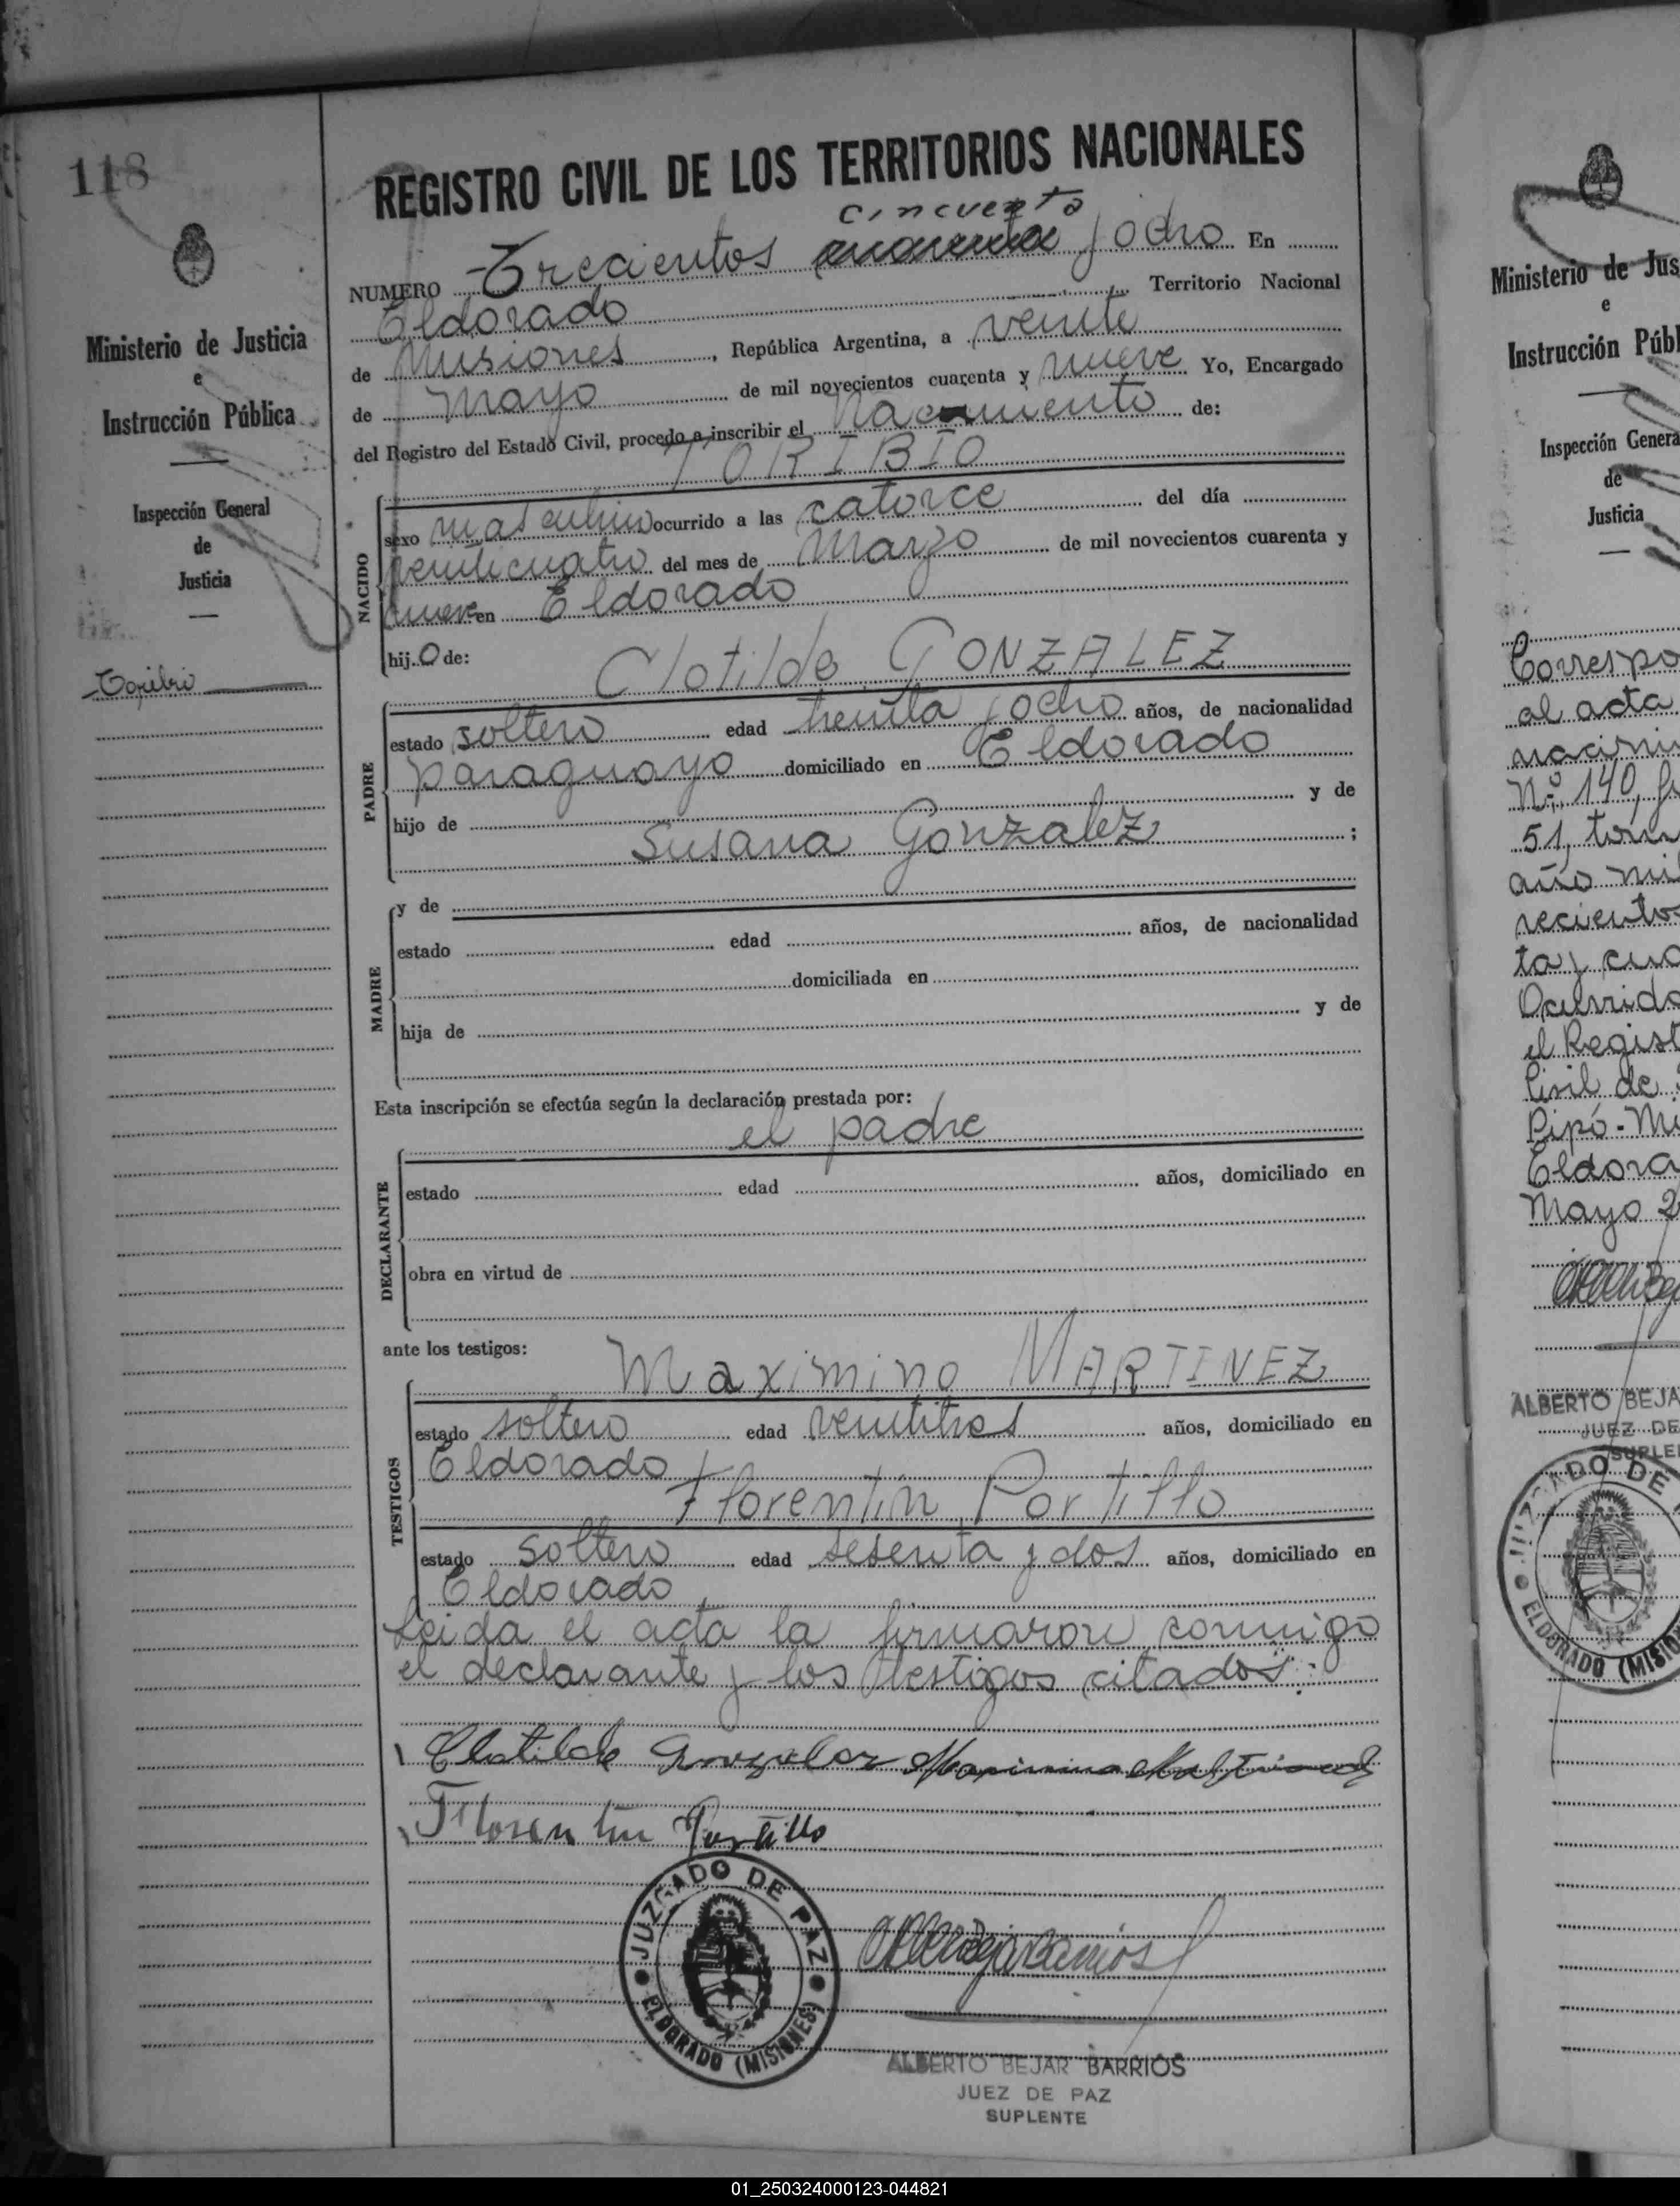 118
REGISTRO CIVIL DE LOS TERRITORIOS NACIONALES
cincuenta
NUMERO Trecientos cuarenta y ocho En
Eldorado Territorio Nacional
de Misiones, República Argentina, a veinte
de Mayo de mil novecientos cuarenta y nueve Yo, Encargado
del Registro del Estado Civil, procedo a inscribir el Nacimiento de:
TORIBIO
NACIDO
sexo masculino ocurrido a las catorce del día
veinticuatro del mes de Marzo de mil novecientos cuarenta y
nueve en Eldorado
hijo de:
Clotilde GONZALEZ
PADRE
estado soltero edad treinta y ocho años, de nacionalidad
paraguayo domiciliado en Eldorado
hijo de y de
Susana Gonzalez ;
MADRE
y de
estado edad años, de nacionalidad
domiciliada en
hija de y de
Esta inscripción se efectúa según la declaración prestada por:
el padre
DECLARANTE
estado edad años, domiciliado en
obra en virtud de
ante los testigos:
Maximino MARTINEZ
TESTIGOS
estado soltero edad veintitres años, domiciliado en
Eldorado y
Florentin Portillo
estado soltero edad sesenta y dos años, domiciliado en
Eldorado
Leida el acta la firmaron conmigo
el declarante y los testigos citados:
Clotilde Gonzalez Maximino Martinez
Florentin Portillo
JUZGADO DE PAZ
ELDORADO (MISIONES)
ALBERTO BEJAR BARRIOS
JUEZ DE PAZ
SUPLENTE
Ministerio de Justicia
e
Instrucción Pública
Inspección General
de
Justicia
Toribio
Ministerio de Jus
e
Instrucción Públ
Inspección Genera
de
Justicia
Correspo
al acta
nacimi
Nº 140, fo
51, tom
año mil
ta y cua
Ocurrido
el Regist
Civil de
Pipó - Mi
Eldora
Mayo 2
ALBERTO BEJA
JUEZ DE
SUPLE
ELDORADO (MISION
01_250324000123-044821